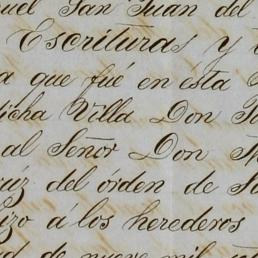 uel San Juan del
Escrituras y
a que fué en ésta
dicha Villa Don
al Señor Don
del órden de
izo á los herederos
de nueve mil